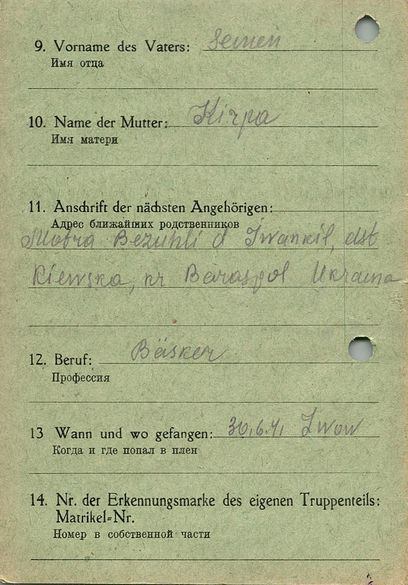 9. Vorname des Vaters: Semen
Имя отца
10. Name der Mutter: Kirpa
Имя матери
11. Anschrift der nächsten Angehörigen:
Адрес ближайших родственников
Motra Bezuhli d Iwankil, dst
Kiewska, nr Baraspol Ukraina
12. Beruf: Bäsker
Профессия
13 Wann und wo gefangen: 30.6.41 Lwow
Когда и где попал в плен
14. Nr. der Erkennungsmarke des eigenen Truppenteils:
Matrikel-Nr.
Номер в собственной части